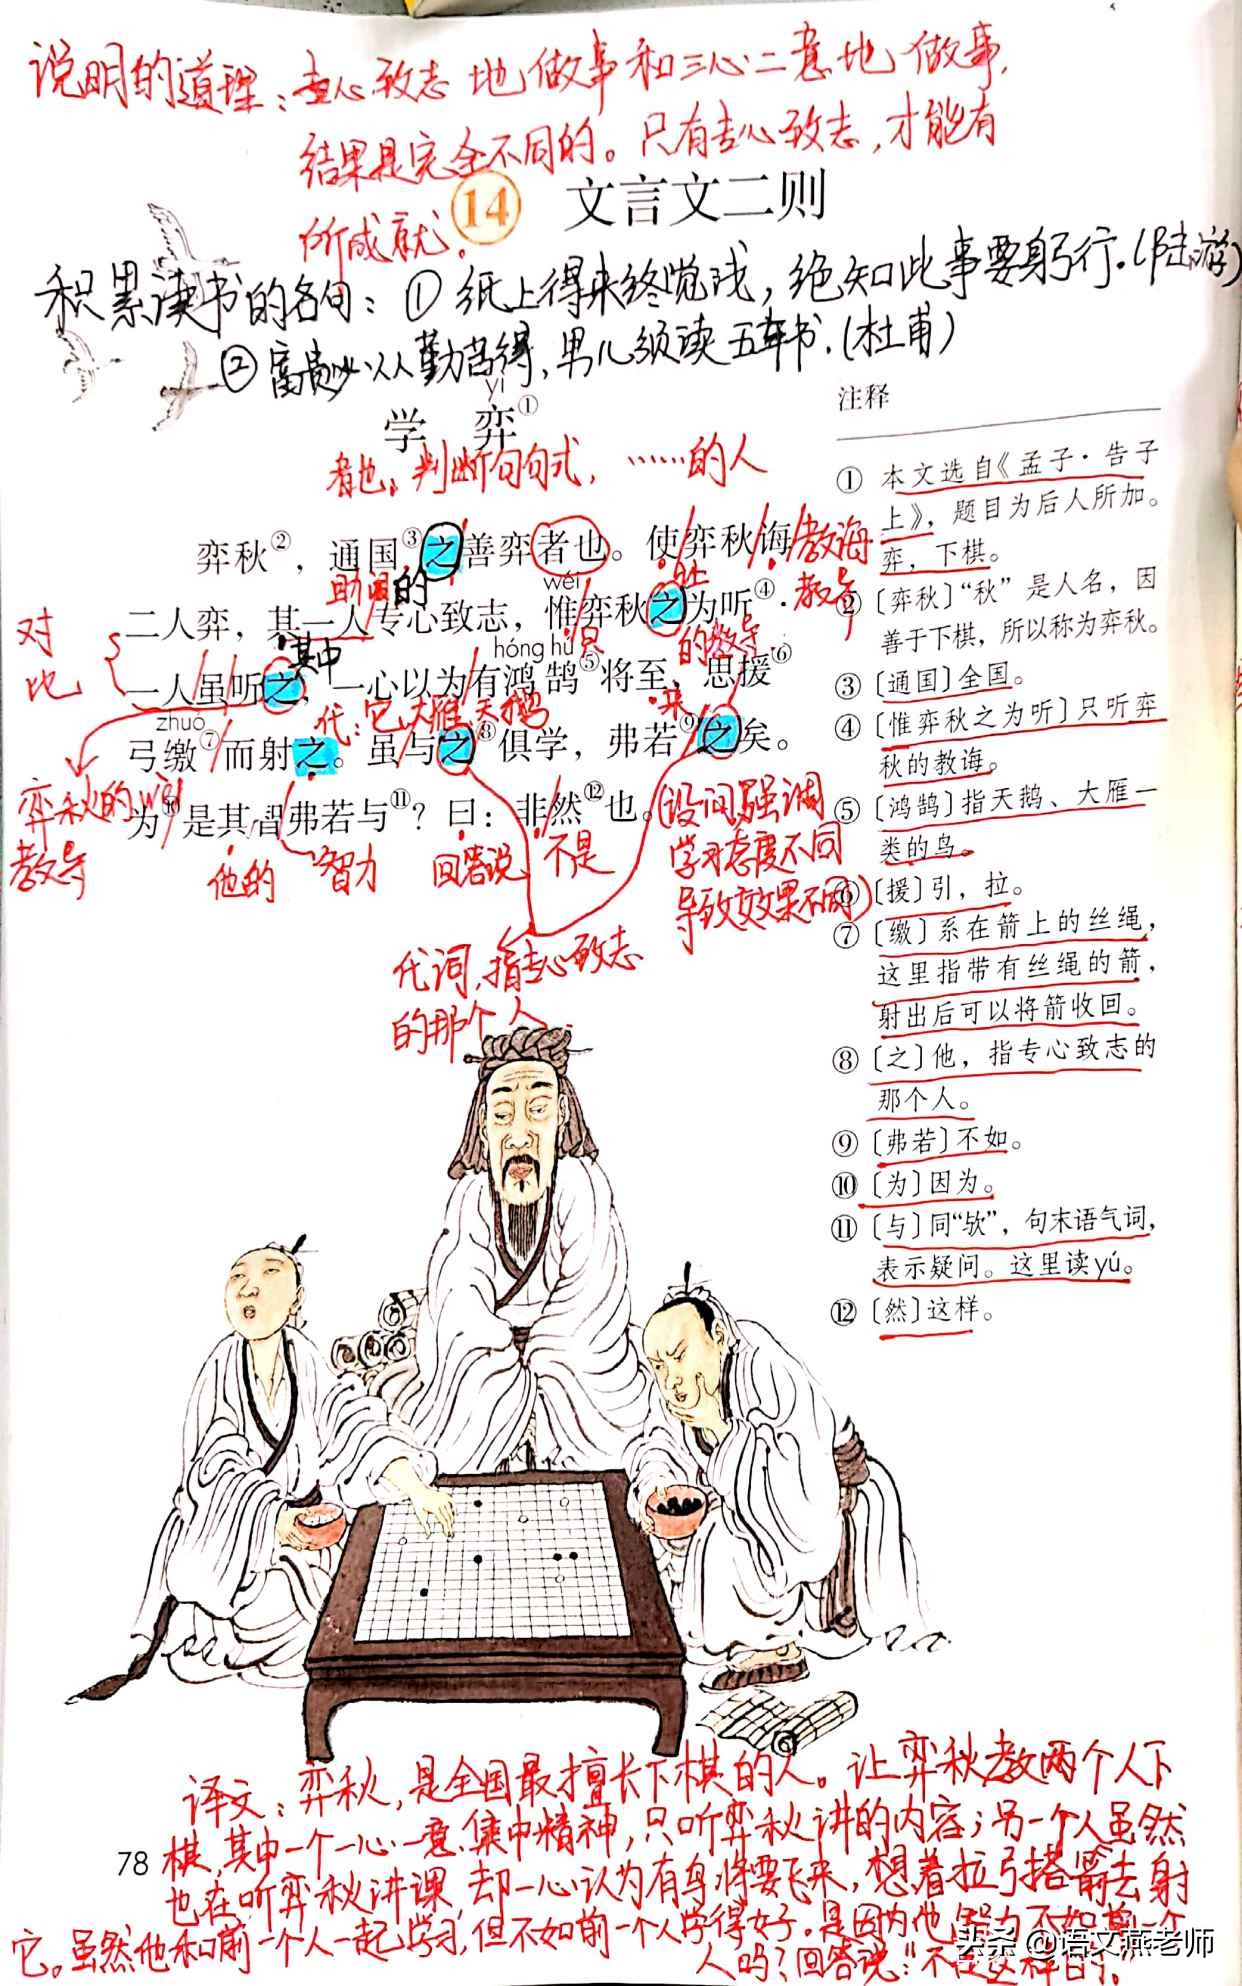 说明的道理：专心致志地做事和三心二意地做事，
结果是完全不同的。只有专心致志，才能有
所成就。
14 文言文二则
积累读书的名句：①纸上得来终觉浅，绝知此事要躬行。(陆游)
②富贵必从勤苦得，男儿须读五车书.(杜甫)
yì
学 弈①
者也：判断句句式，……的人
弈秋②，通国③之善弈者也。使弈秋诲
教诲
助词 的
让
教导
wéi
二人弈，其一人专心致志，惟弈秋之为听④。
对比
其中
只
的教导
hóng hú
一人虽听之，一心以为有鸿鹄⑤将至，思援⑥
代：它，大雁，天鹅
来
zhuó
弓缴⑦而射之。虽与之⑧俱学，弗若⑨之矣。
弈秋的教导
wèi
为⑩是其智弗若与⑪？曰：非然⑫也。
(设问，强调
学习态度不同
导致效果不同)
他的
智力
回答说
不是
代词，指专心致志
的那个人
注释
① 本文选自《孟子·告子
上》，题目为后人所加。
弈，下棋。
②〔弈秋〕“秋”是人名，因
善于下棋，所以称为弈秋。
③〔通国〕全国。
④〔惟弈秋之为听〕只听弈
秋的教诲。
⑤〔鸿鹄〕指天鹅、大雁一
类的鸟。
⑥〔援〕引，拉。
⑦〔缴〕系在箭上的丝绳，
这里指带有丝绳的箭，
射出后可以将箭收回。
⑧〔之〕他，指专心致志的
那个人。
⑨〔弗若〕不如。
⑩〔为〕因为。
⑪〔与〕同“欤”，句末语气词，
表示疑问。这里读yú。
⑫〔然〕这样。
译文：弈秋，是全国最擅长下棋的人。让弈秋教两个人下
棋，其中一个一心一意，集中精神，只听弈秋讲的内容；另一个人虽然
也在听弈秋讲课，却一心认为有鸟将要飞来，想着拉弓搭箭去射
它。虽然他和前一个人一起学习，但不如前一个人学得好。是因为他智力不如前一个
人吗？回答说：“不是这样的。”
78
头条 @语文燕老师